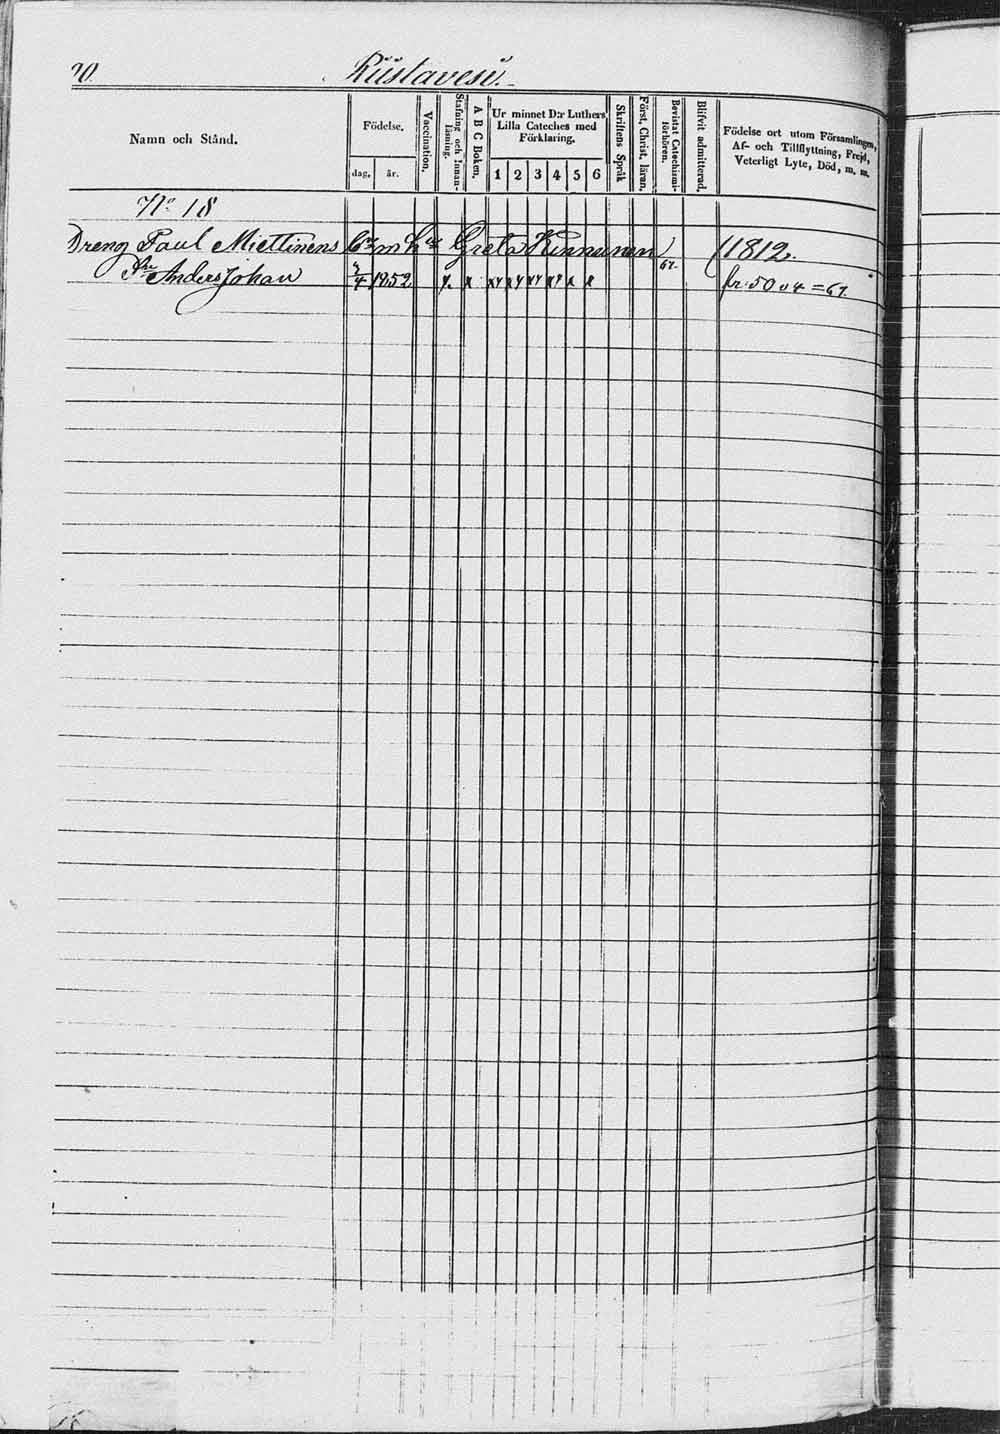 20. Riistavesi.
Namn och Stånd.
Födelse.
dag. år.
Vaccination.
Stafning och Innanläsning.
A B C Boken.
Ur minnet D:r Luthers
Lilla Cateches med
Förklaring.
1 2 3 4 5 6
Skriftens Språk
Först. Christ. läran.
Bevistat Catechismi-
förhören.
Blifvit admitterad.
Födelse ort utom Församlingen,
Af- och Tillflyttning, Frejd,
Veterligt Lyte, Död, m. m.
No 18
Dreng Paul Miettinens Greta Kinnunen 1812.
Anders Johan 1852 67. fr. 50 v 4 = 67.